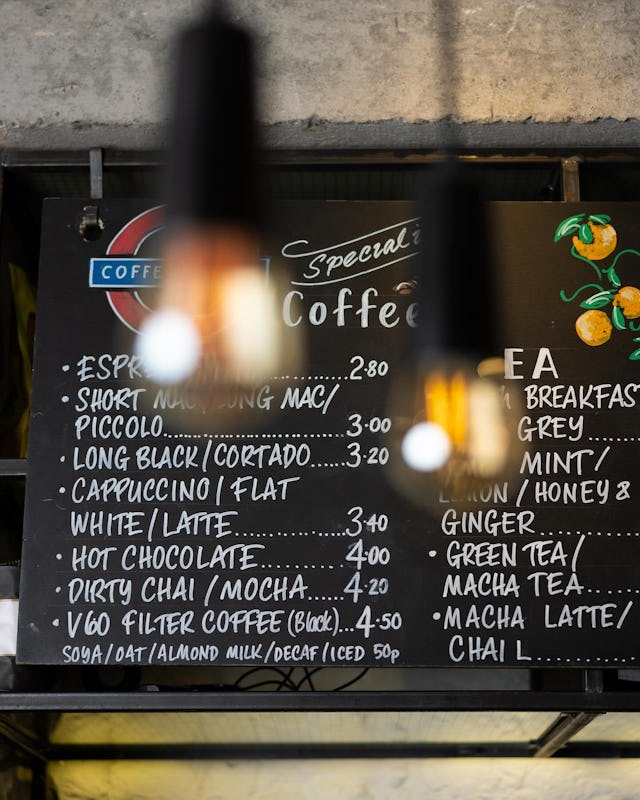 COFFE
Speciali
Coffee
• ESPR 2.80
• SHORT MAC/LONG MAC/
PICCOLO 3.00
• LONG BLACK/CORTADO 3.20
• CAPPUCCINO/FLAT
WHITE/LATTE 3.40
• HOT CHOCOLATE 4.00
• DIRTY CHAI/MOCHA 4.20
• V60 FILTER COFFEE (Black) 4.50
SOYA/OAT/ALMOND MILK/DECAF/ICED 50p
EA
BREAKFAS
GREY
MINT/
LEMON/HONEY &
GINGER
• GREEN TEA/
MACHA TEA
• MACHA LATTE/
CHAI L